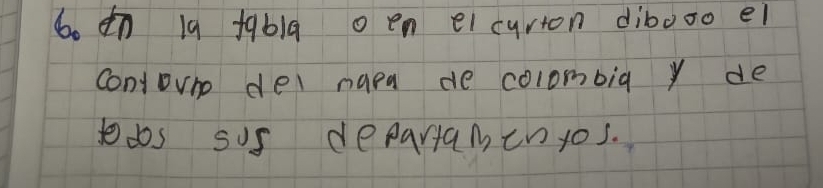 6. En la tabla o en el carton dibujo el
contorno del mapa de colombia y de
todos sus departamentos.